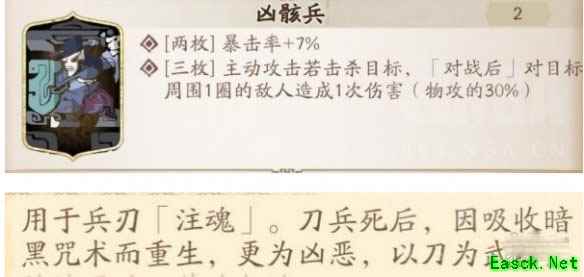 凶骸兵
2
[两枚] 暴击率+7%
[三枚] 主动攻击若击杀目标,「对战后」对目标
周围1圈的敌人造成1次伤害(物攻的30%)
用于兵刃「注魂」。刀兵死后,因吸收暗
黑咒术而重生,更为凶恶,以刀为武
Easck.Net